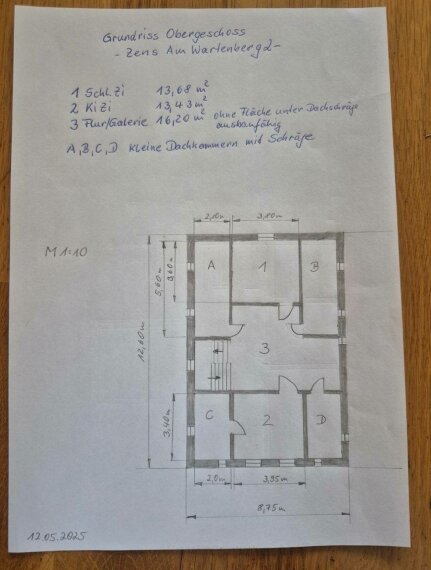 Grundriss Obergeschoss
- Zens Am Wartenberg 2 -
1 Schl. Zi 13,68 m²
2 Ki Zi 13,43 m²
3 Flur/Galerie 16,20 m² ohne Fläche unter Dachschräge
ausbaufähig
A, B, C, D kleine Dachkammern mit Schräge
M 1:10
3,80m
A
1
B
5,60m
3,60m
12,60m
3
C
2
D
3,40m
2,0m
3,95m
8,75m
12.05.2025